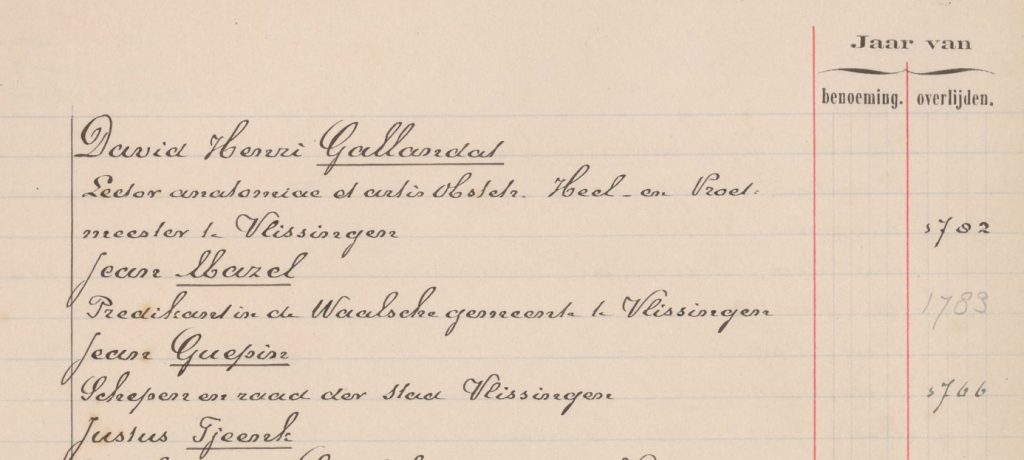 Jaar van
benoeming. overlijden.
David Henri Gallandat
Lector anatomiae et artis obstetr. Heel- en Vroed-
meester te Vlissingen 1782
Jean Mazel
Predikant in de Waalsche gemeente te Vlissingen 1783
Jean Guepin
Schepen en raad der stad Vlissingen 1766
Justus Tjeenk